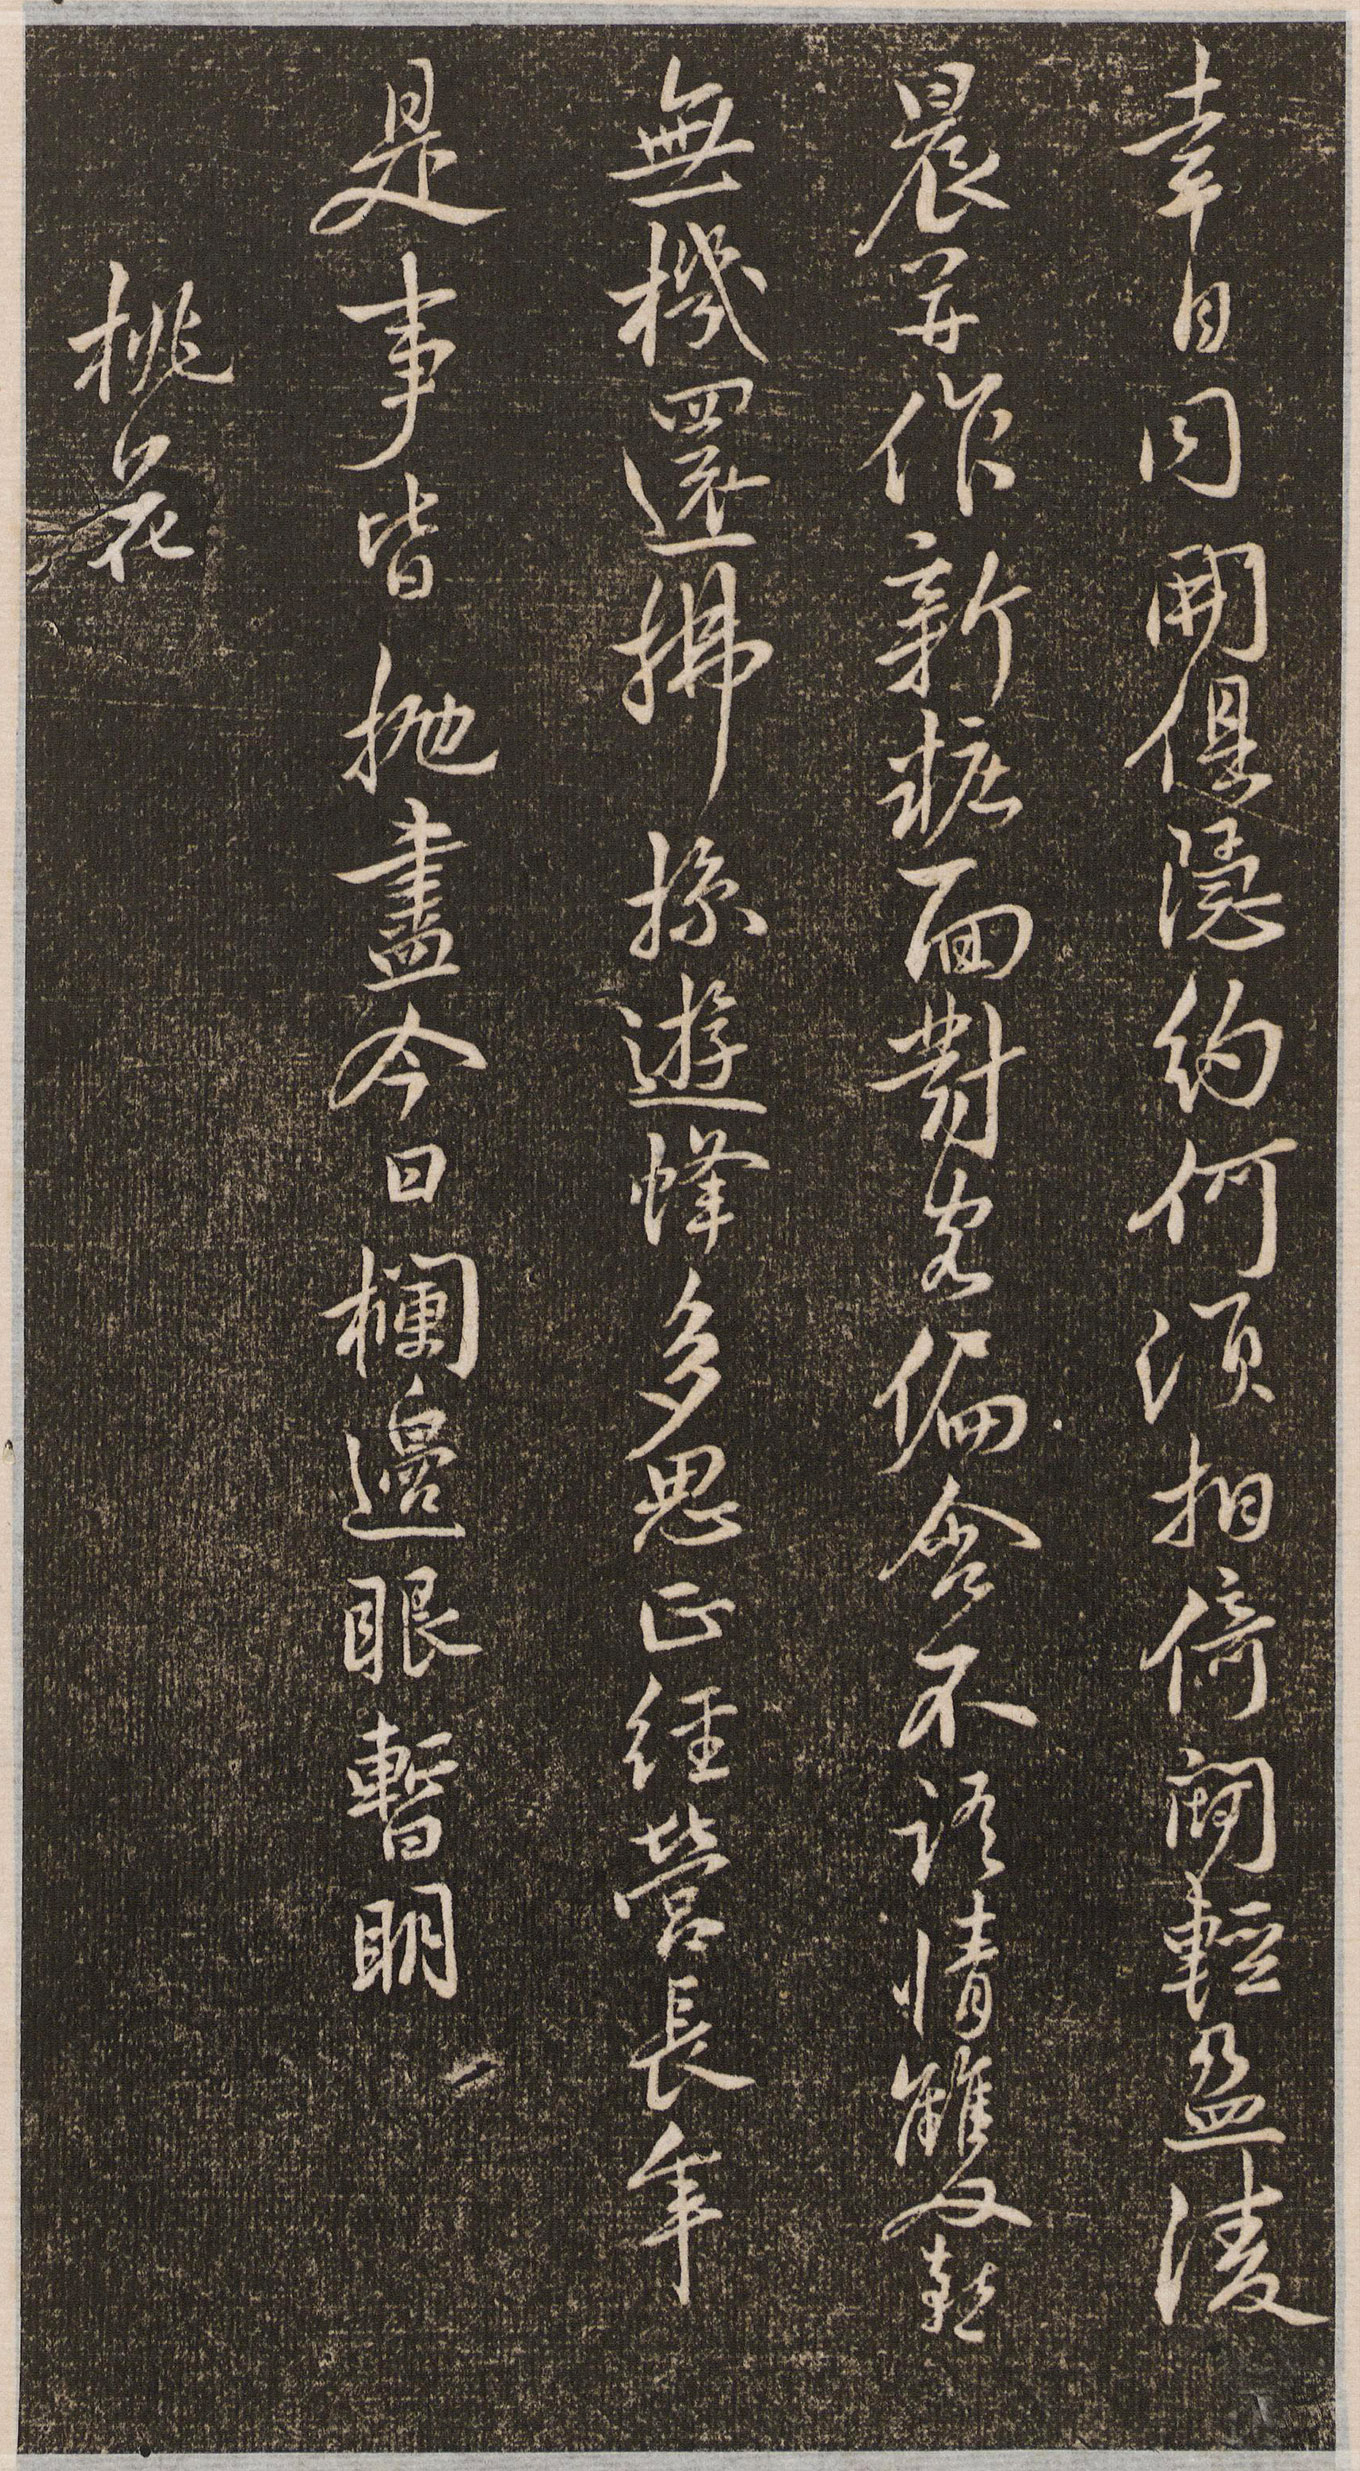 幸自同開俱隱約何須相倚鬭輕盈淩
晨并作新粧面對客偏含不語情雙燕
無機還拂掠遊蜂多思正經營長年
是事皆拋盡今日欄邊眼暫明
桃花